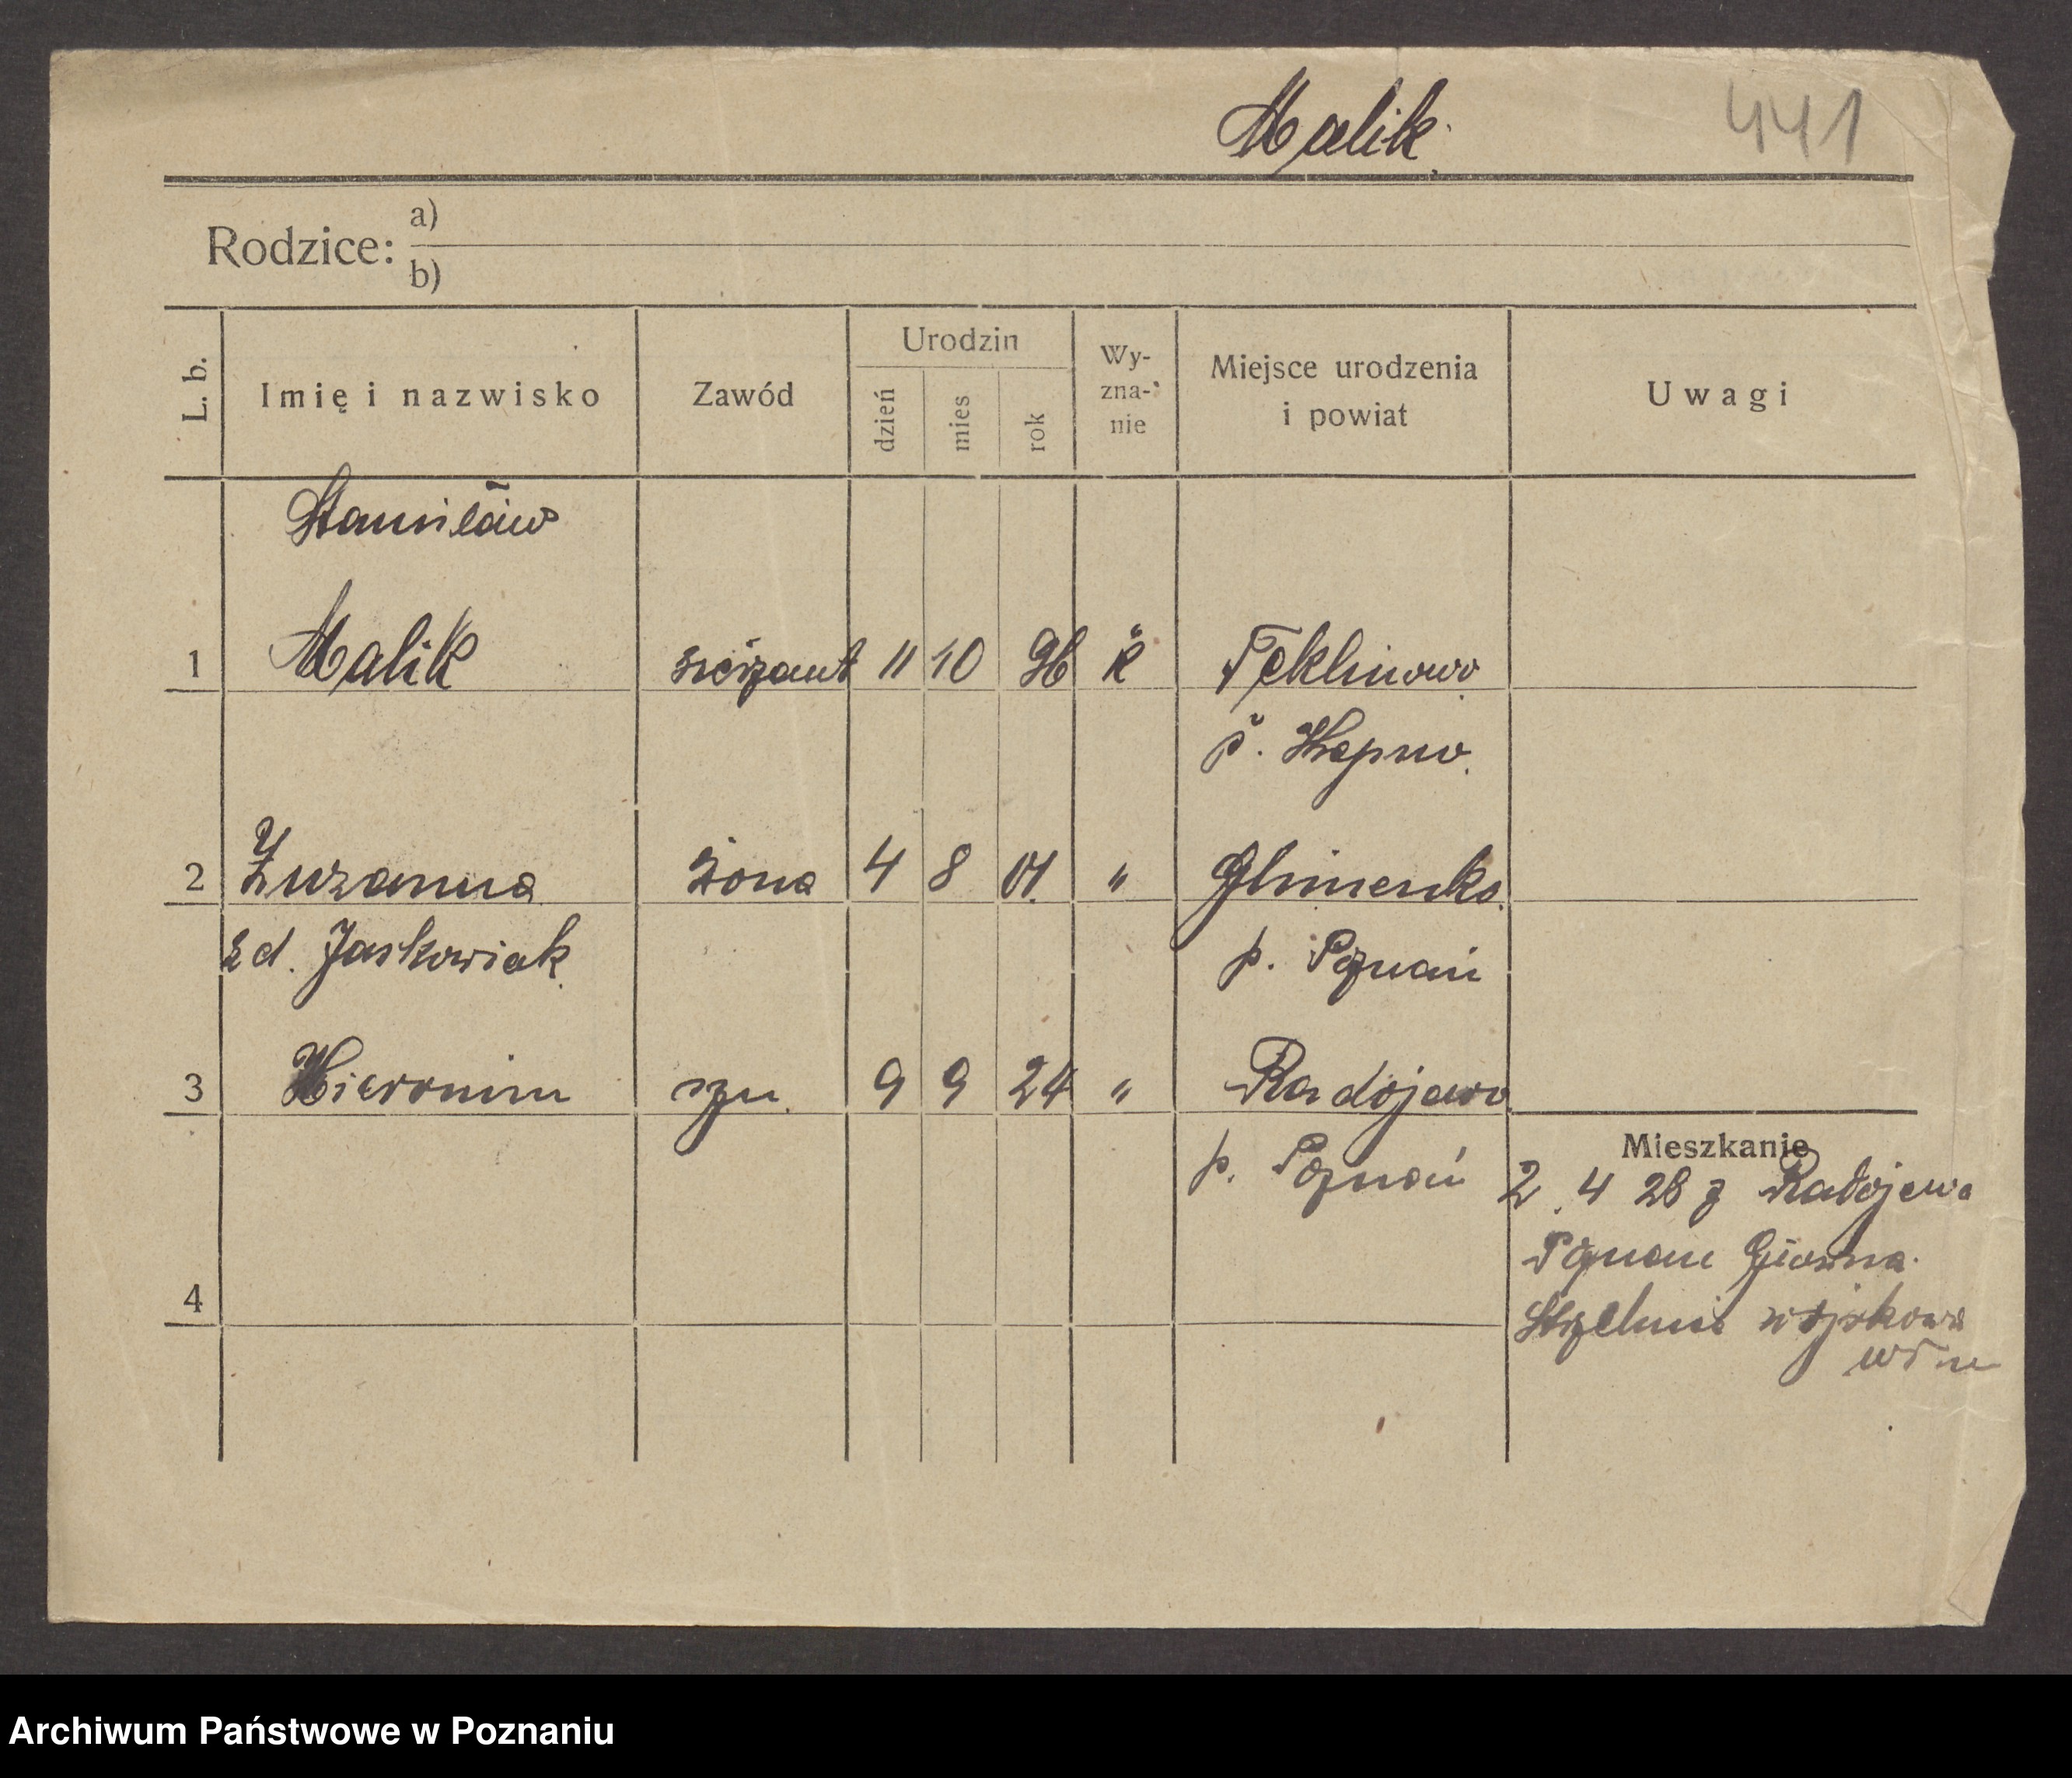 Malik.
441
Rodzice: a)
b)
L. b.
Imię i nazwisko
Zawód
Urodzin
dzień
mies
rok
Wy-
zna-
nie
Miejsce urodzenia
i powiat
Uwagi
Stanisław
1 Malik sierżant 11 10 96 k Teklinowo
p. Kępno.
2 Zuzanna żona 4 8 01. " Glinienko
z d. Jaskowiak. p. Poznań
3 Hieronim syn 9 9 24 " Radojewo
p. Poznań
Mieszkanie
2. 4 28 z Radojewa
Poznań Główna.
4
Strzelnica wojskowa
Archiwum Państwowe w Poznaniu